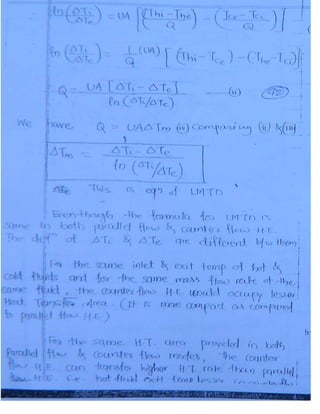 ln(ΔTi/ΔTe) = UA [(Thi - The)/Q - (Tce - Tci)/Q]
ln(ΔTi/ΔTe) = 1/Q (UA) [(Thi - Tce) - (The - Tci)]
Q = UA [ΔTi - ΔTe] / ln(ΔTi/ΔTe) (ii)
We have, Q = UAΔTm (iii) comparing (ii) & (iii)
ΔTm = ΔTi - ΔTe / ln(ΔTi/ΔTe)
This is eqn of LMTD
Even though the formula for LMTD is
same in both parallel flow & counter flow H.E.
The defn of ΔTi & ΔTe are different b/w them
For the same inlet & exit temp of hot &
cold fluids and for the same mass flow rate of the
same fluid, the counter flow H.E would occupy lesser
Heat Transfer Area. (It is more compact as compared
to parallel flow H.E)
For the same H.T. area provided in both
Parallel flow & counter flow modes, the counter
flow H.E. can transfer higher H.T. rate than parallel
flow H.E. i.e. hot fluid exit temp lesser in